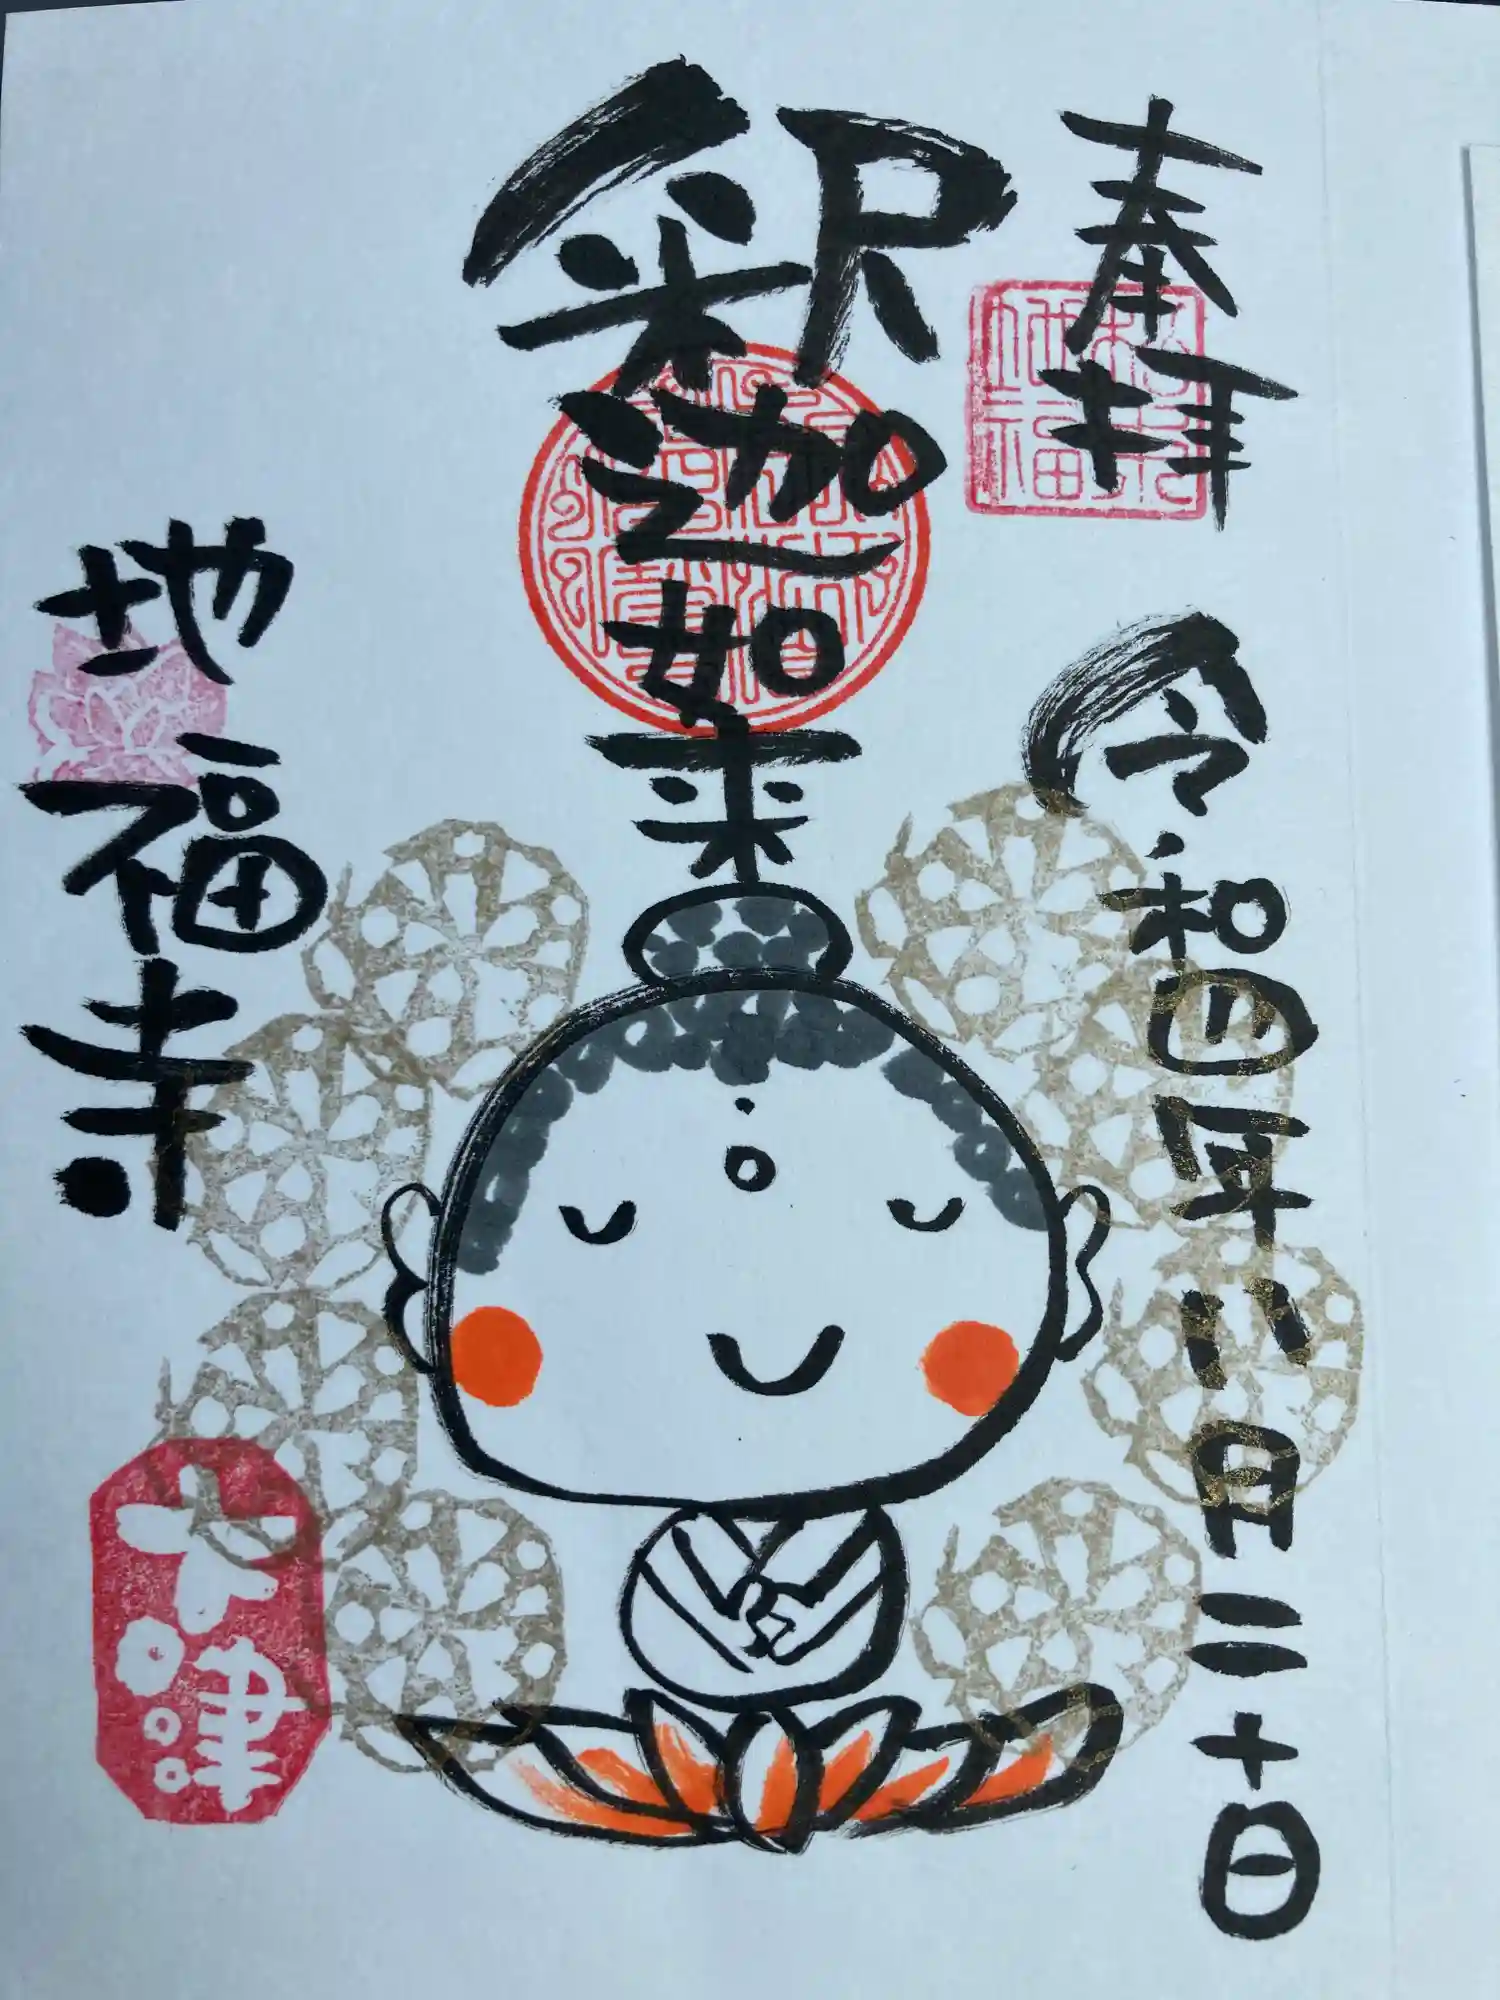 奉拝
令和四年八月二十日
釈迦如来
地福寺